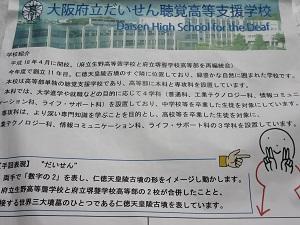 大阪府立だいせん聴覚高等支援学校
Daisen High School for the Deaf
学校紹介
平成18年4月に開校。(府立生野高等聾学校と府立堺聾学校高等部を再編統合)
今年度で創立11年目。仁徳天皇陵古墳のすぐ崎に位置しており、緑豊かな自然に囲まれた学校です。
本校は高等部単独の聴覚支援学校であり、高等部に本科と専攻科を設置しています。
本科では、大学進学や就職などの目的に応じて4学科(普通科、工業テクノロジー科、情報コミュ
ニケーション科、ライフ・サポート科)を設置しており、中学校等を卒業した生徒を対象にしています。
専攻科は、より深い専門知識を学ぶことを目的とし、高校等を卒業した生徒を対象に、
テクノロジー科、情報コミュニケーション科、ライフ・サポート科の3学科を設置しています。
手話表現】 “だいせん”
両手で「数字の2」を表し、仁徳天皇陵古墳の形をイメージし動かします。
府立生野高等聾学校と府立堺聾学校高等部の2校が合併したことと、
接する世界三大墳墓のひとつである仁徳天皇陵古墳を表しています。